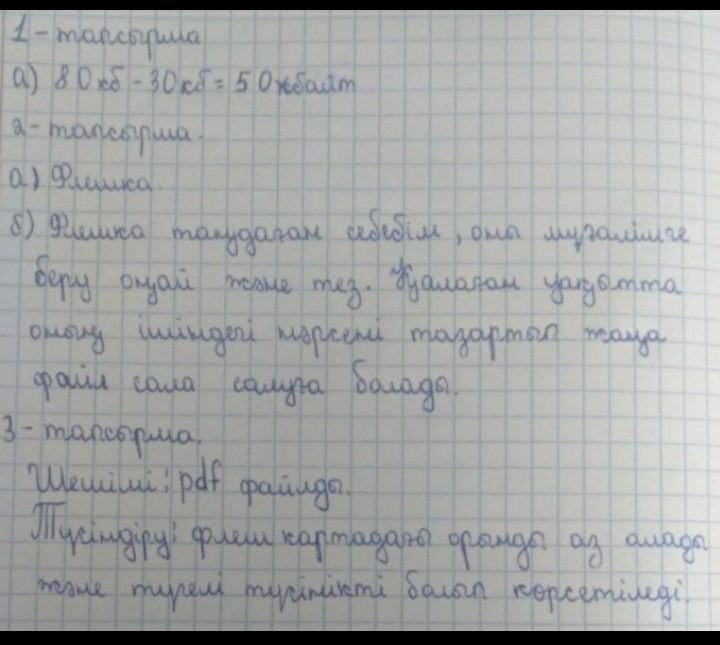 1-тапсырма
а) 80 кб - 30 кб = 50 кбайт
2-тапсырма.
а) Флешка.
б) Флешка таңдаған себебім, оны мұғалімге
беру оңай және тез. Қалаған уақытта
оның ішіндегі нәрсені тазартып жаңа
файл сала салуға болады.
3-тапсырма.
Шешімі: pdf файлды.
Түсіндіру: флеш картадағы орынды аз алады
және түрлі түсінікті болып көрсетіледі.